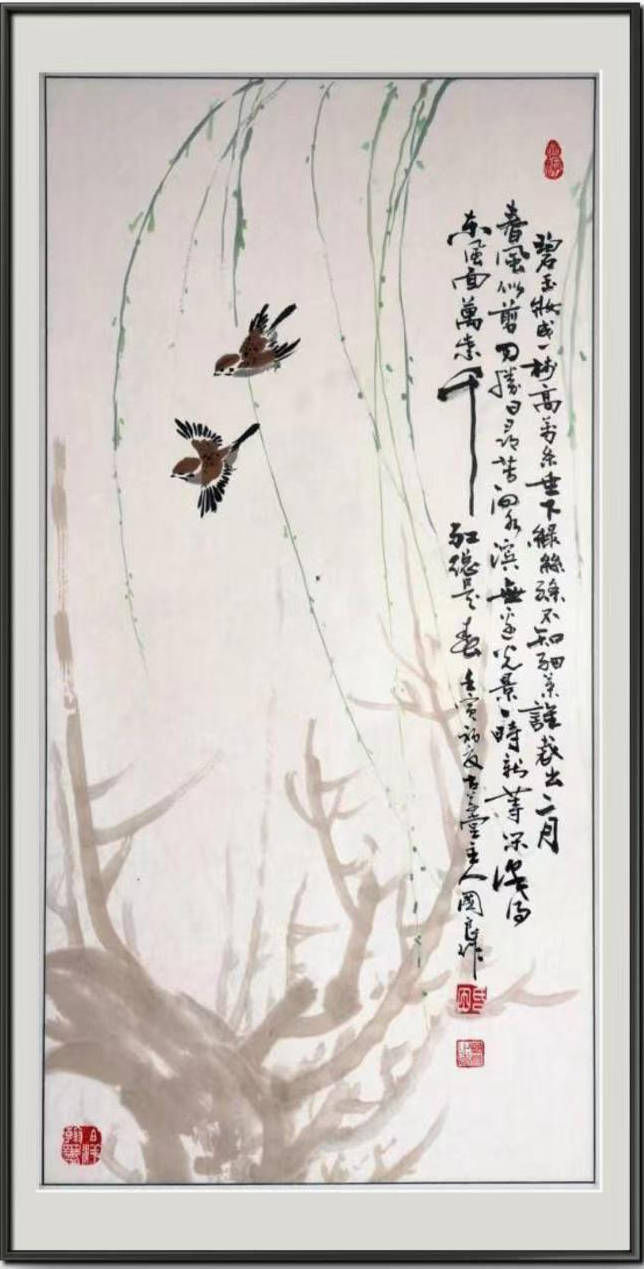 碧玉妝成一樹高萬条垂下綠絲絛不知細葉誰裁出二月
春風似剪刀勝日尋芳泗水濱無邊光景一時新等閑識得
東風面萬紫千紅總是春 壬寅初夏古堂主人國良作